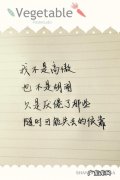 Vegetable
我不是高傲
也不是胡闹
只是厌倦了那些
随时可能失去的依靠